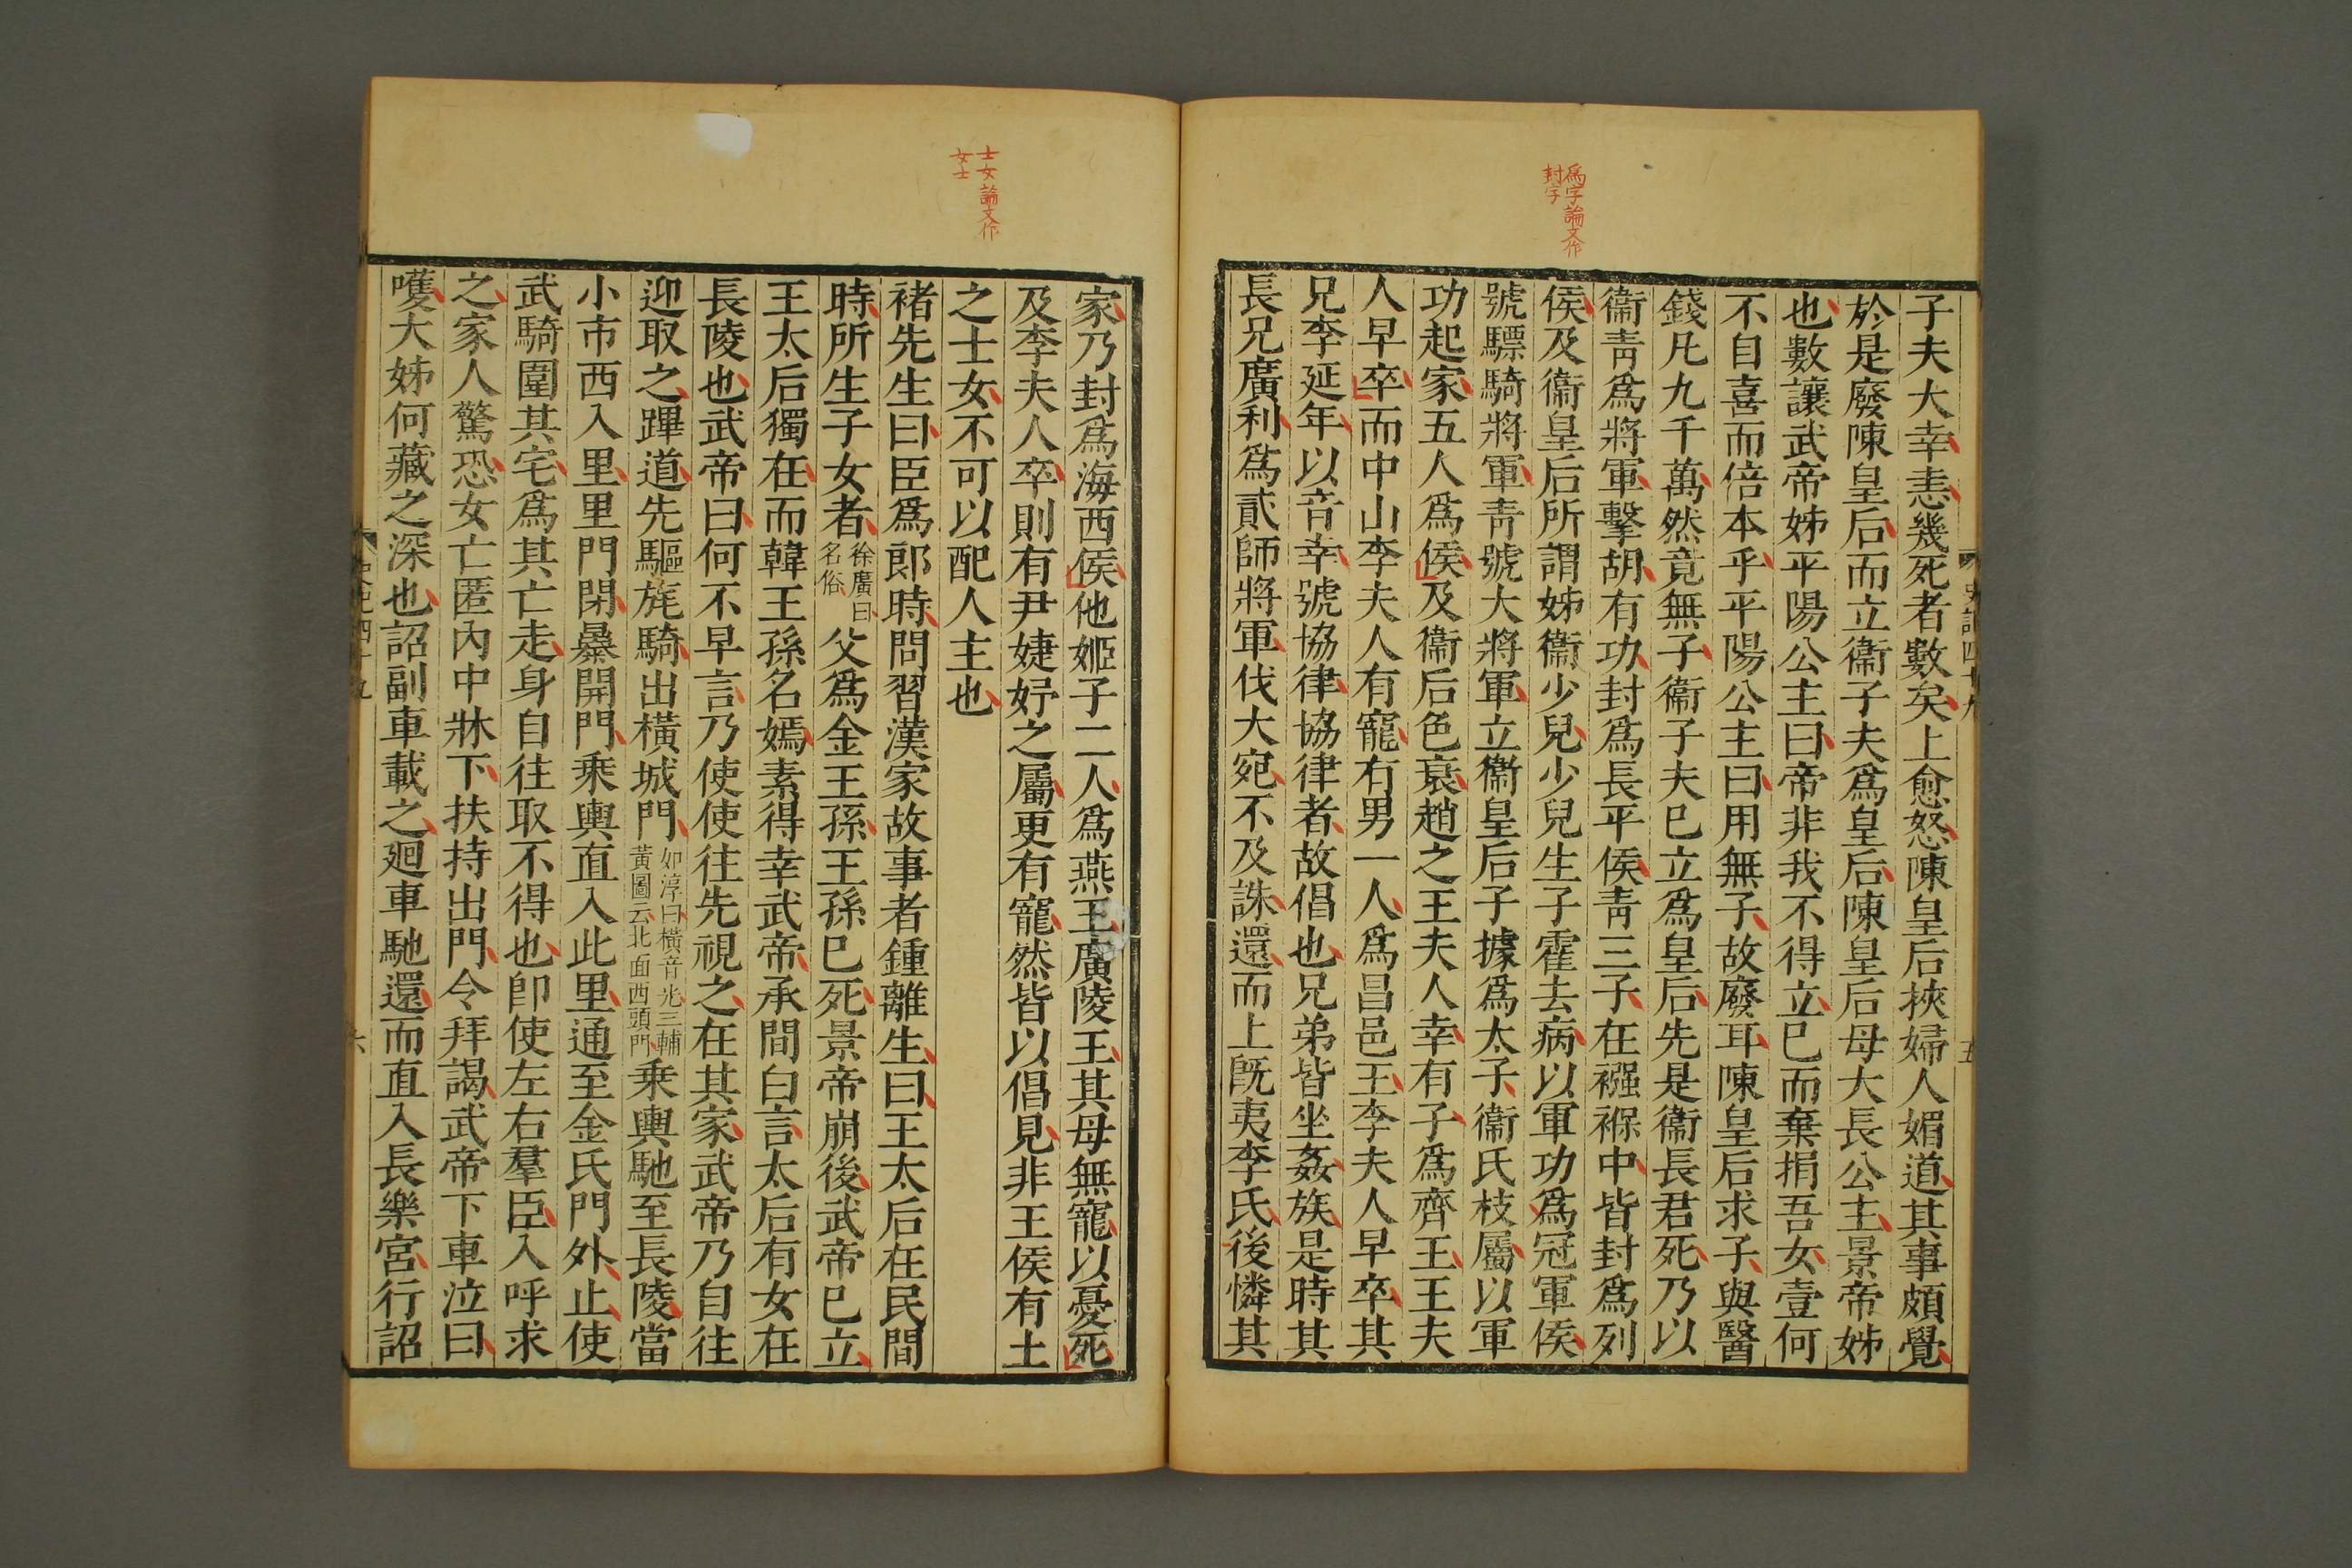 爲字論文作
封字
子夫大幸恚幾死者數矣上愈怒陳皇后挾婦人媚道其事頗覺
於是廢陳皇后而立衞子夫爲皇后陳皇后母大長公主景帝姊
也數讓武帝姊平陽公主曰帝非我不得立已而棄捐吾女壹何
不自喜而倍本乎平陽公主曰用無子故廢耳陳皇后求子與醫
錢凡九千萬然竟無子衞子夫已立爲皇后先是衞長君死乃以
衞靑爲將軍擊胡有功封爲長平侯靑三子在襁褓中皆封爲列
侯及衞皇后所謂姊衞少兒少兒生子霍去病以軍功爲冠軍侯
號驃騎將軍靑號大將軍立衞皇后子據爲太子衞氏枝屬以軍
功起家五人爲侯及衞后色衰趙之王夫人幸有子爲齊王王夫
人早卒而中山李夫人有寵有男一人爲昌邑王李夫人早卒其
兄李延年以音幸號協律協律者故倡也兄弟皆坐姦族是時其
長兄廣利爲貳師將軍伐大宛不及誅還而上旣夷李氏後憐其
士女論文作
女士
家乃封爲海西侯他姬子二人爲燕王廣陵王其母無寵以憂死
及李夫人卒則有尹婕妤之屬更有寵然皆以倡見非王侯有土
之士女不可以配人主也
褚先生曰臣爲郎時問習漢家故事者鍾離生曰王太后在民間
時所生子女者徐廣曰名俗父爲金王孫王孫已死景帝崩後武帝已立
王太后獨在而韓王孫名嫣素得幸武帝承間白言太后有女在
長陵也武帝曰何不早言乃使使往先視之在其家武帝乃自往
迎取之蹕道先驅旄騎出橫城門如淳曰橫音光三輔黃圖云北面西頭門乘輿馳至長陵當
小市西入里里門閉暴開門乘輿直入此里通至金氏門外止使
武騎圍其宅爲其亡走身自往取不得也卽使左右羣臣入呼求
之家人驚恐女亡匿內中牀下扶持出門令拜謁武帝下車泣曰
嚄大姊何藏之深也詔副車載之廻車馳還而直入長樂宮行詔